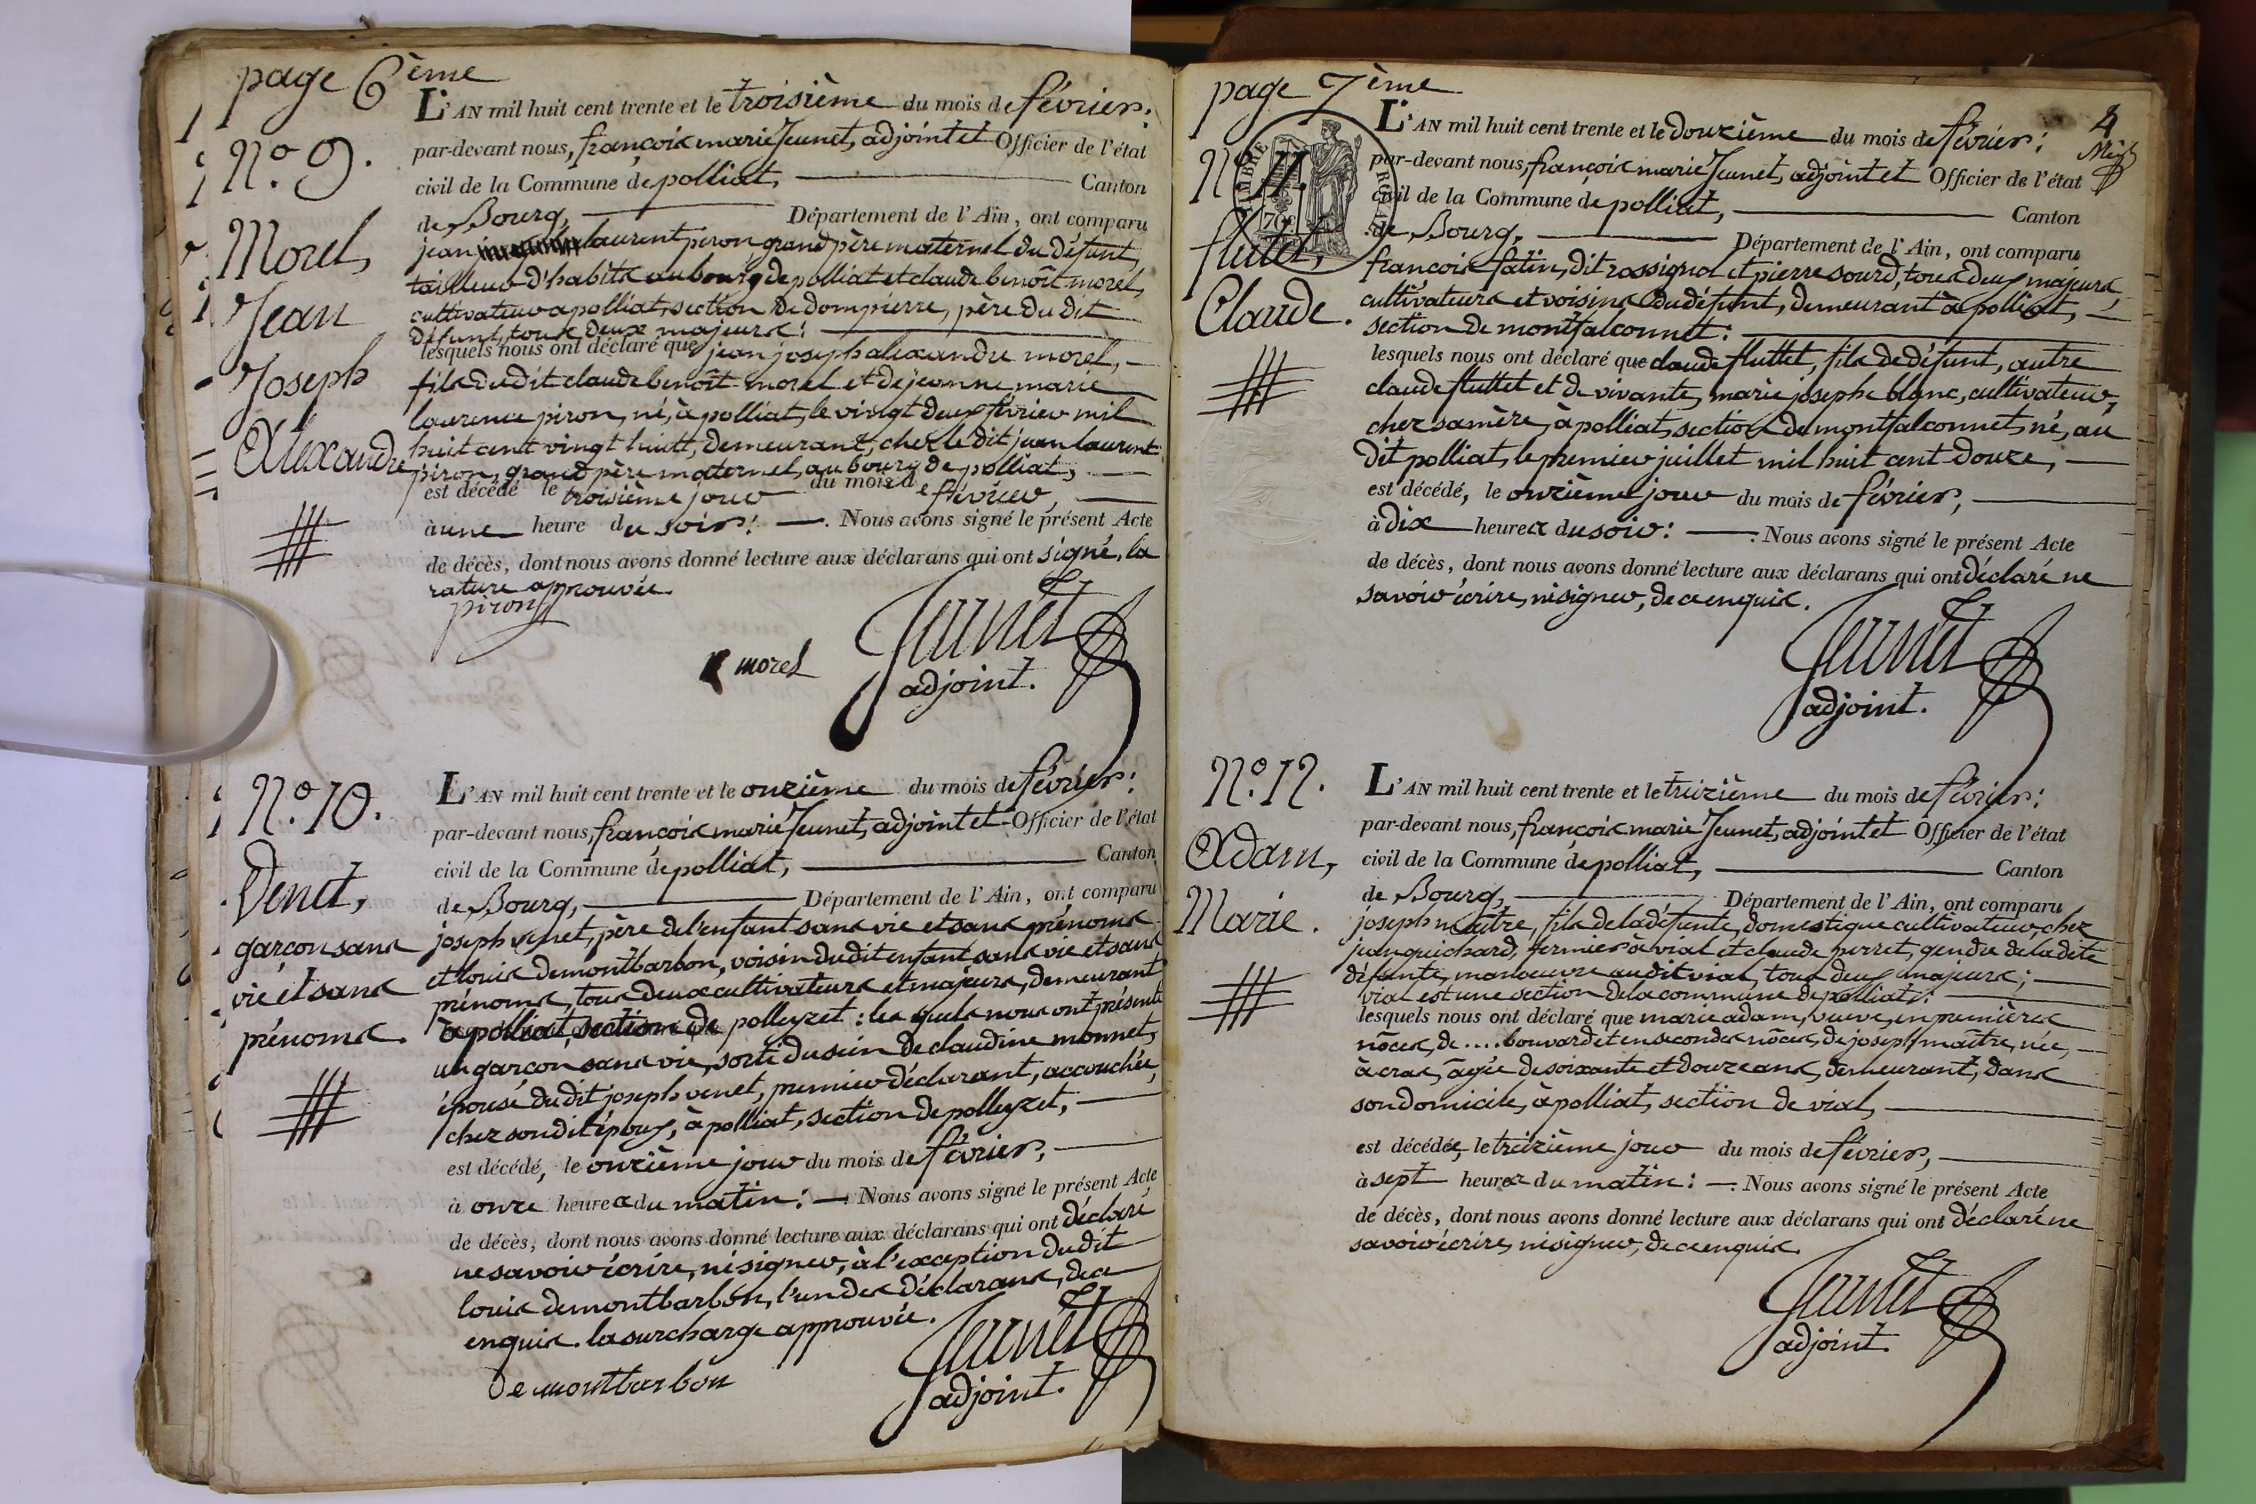 page 6ème
N.o 9.
Morel,
Jean
Joseph
Alexandre
L'AN mil huit cent trente et le troisième du mois de février.
par-devant nous, françois marie Jeunet, adjoint et Officier de l'état
civil de la Commune de polliat, Canton
de Bourg, Département de l'Ain, ont comparu
jean laurent piron grand père maternel du défunt,
tailleur d'habits au bourg de polliat et claude benoît morel,
cultivateur a polliat, section de dompierre, père du dit
défunt, tous deux majeurs:
lesquels nous ont déclaré que jean joseph alexandre morel,
fils du dit claude benoît morel et de jeanne marie
laurence piron, né, à polliat, le vingt deux février mil
huit cent vingt huit, demeurant, chez le dit jean laurent
piron, grand père maternel, au bourg de polliat,
est décédé le troisième jour du mois de février,
à une heure du soir: Nous avons signé le présent Acte
de décès, dont nous avons donné lecture aux déclarans qui ont signé, la
rature approuvée.
piron
morel
Jeunet
adjoint.
N.o 10.
Venet,
garçon sans
vie et sans
prénoms.
L'AN mil huit cent trente et le onzième du mois de février:
par-devant nous, françois marie Jeunet, adjoint et Officier de l'état
civil de la Commune de polliat, Canton
de Bourg, Département de l'Ain, ont comparu
joseph venet, père de l'enfant sans vie et sans prénoms
et louis demontbarbon, voisin du dit enfant sans vie et sans
prénoms, tous deux cultivateurs et majeurs, demeurant
à polliat, section de polleyzet: les quels nous ont présenté
un garçon sans vie, sorti du sein de claudine monnet,
épouse du dit joseph venet, premier déclarant, accouchée,
chez son dit époux, à polliat, section de polleyzet,
est décédé, le onzième jour du mois de février,
à onze heures du matin: Nous avons signé le présent Acte
de décès, dont nous avons donné lecture aux déclarans qui ont déclaré
ne savoir écrire, ni signer, à l'exception du dit
louis demontbarbon, l'un des déclarans, de ce
enquis. la surcharge approuvée.
de montbarbon
Jeunet
adjoint.
page 7ème
4
N.o 11.
fluttet,
Claude.
TIMBRE
ROYAL
70c
L'AN mil huit cent trente et le douzième du mois de février:
par-devant nous, françois marie Jeunet, adjoint et Officier de l'état
civil de la Commune de polliat, Canton
de Bourg, Département de l'Ain, ont comparu
françois fatin, dit rossignol et pierre sourd, tous deux majeurs,
cultivateurs et voisins du défunt, demeurant à polliat,
section de montfalconnet:
lesquels nous ont déclaré que claude fluttet, fils de défunt, autre
claude fluttet et de vivante, marie josephe blanc, cultivateur,
chez sa mère, à polliat, section de montfalconnet, né, au
dit polliat, le premier juillet mil huit cent douze,
est décédé, le onzième jour du mois de février,
à dix heures du soir: Nous avons signé le présent Acte
de décès, dont nous avons donné lecture aux déclarans qui ont déclaré ne
savoir écrire, ni signer, de ce enquis.
Jeunet
adjoint.
N.o 12.
Adam,
Marie.
L'AN mil huit cent trente et le treizième du mois de février:
par-devant nous, françois marie Jeunet, adjoint et Officier de l'état
civil de la Commune de polliat, Canton
de Bourg, Département de l'Ain, ont comparu
joseph maître, fils de la défunte, domestique cultivateur, chez
jean guichard, fermier a vial et claude perret, gendre de la dite
défunte, manoeuvre au dit vial, tous deux majeurs;
vial est une section de la commune de polliat:
lesquels nous ont déclaré que marie adam, veuve, en premières
nôces, de .... bouvard et en secondes nôces, de joseph maître, née,
à cras, âgée de soixante et douze ans, demeurant, dans
son domicile, à polliat, section de vial,
est décédée, le treizième jour du mois de février,
à sept heures du matin: Nous avons signé le présent Acte
de décès, dont nous avons donné lecture aux déclarans qui ont déclaré ne
savoir écrire, ni signer, de ce enquis.
Jeunet
adjoint.